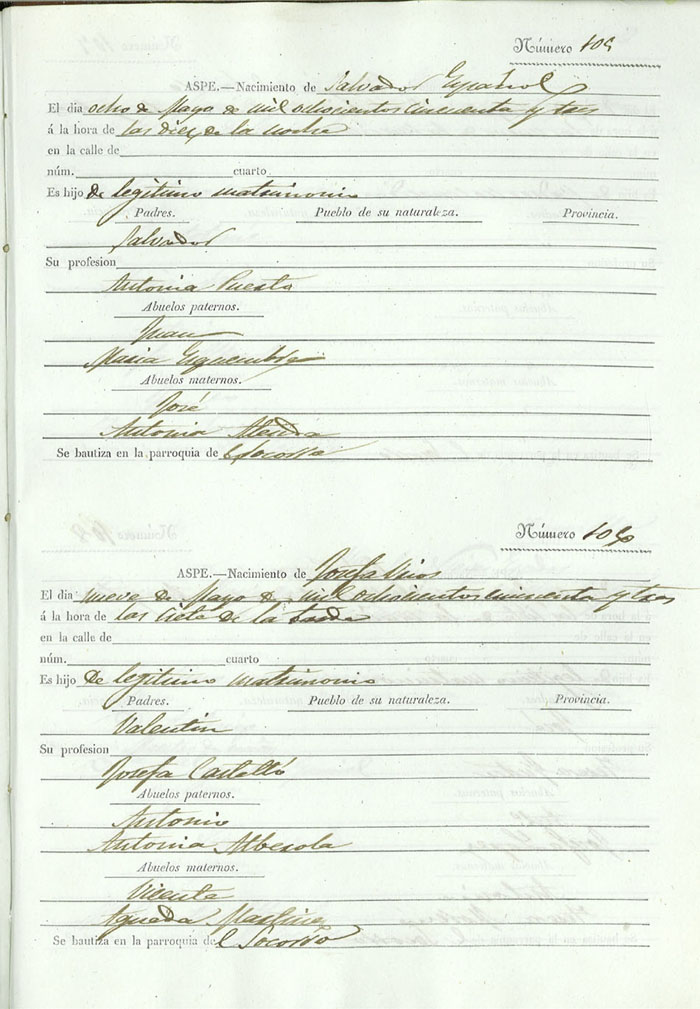 Número 105
ASPE.—Nacimiento de Salvador Español
El dia ocho de Mayo de mil ochocientos cincuenta y tres
á la hora de las diez de la noche
en la calle de
núm. cuarto
Es hijo de legitimo matrimonio
Padres. Pueblo de su naturaleza. Provincia.
Salvador
Su profesion
Antonia Puerto
Abuelos paternos.
Juan
Maria Esquembre
Abuelos maternos.
José
Antonia Alenda
Se bautiza en la parroquia de el Socorro
Número 106
ASPE.—Nacimiento de Josefa
El dia nueve de Mayo de mil ochocientos cincuenta y tres
á la hora de las siete de la tarde
en la calle de
núm. cuarto
Es hijo de legitimo matrimonio
Padres. Pueblo de su naturaleza. Provincia.
Valentin
Su profesion
Josefa Castelló
Abuelos paternos.
Antonio
Antonia Alberola
Abuelos maternos.
Vicente
Agueda Martinez
Se bautiza en la parroquia de el Socorro